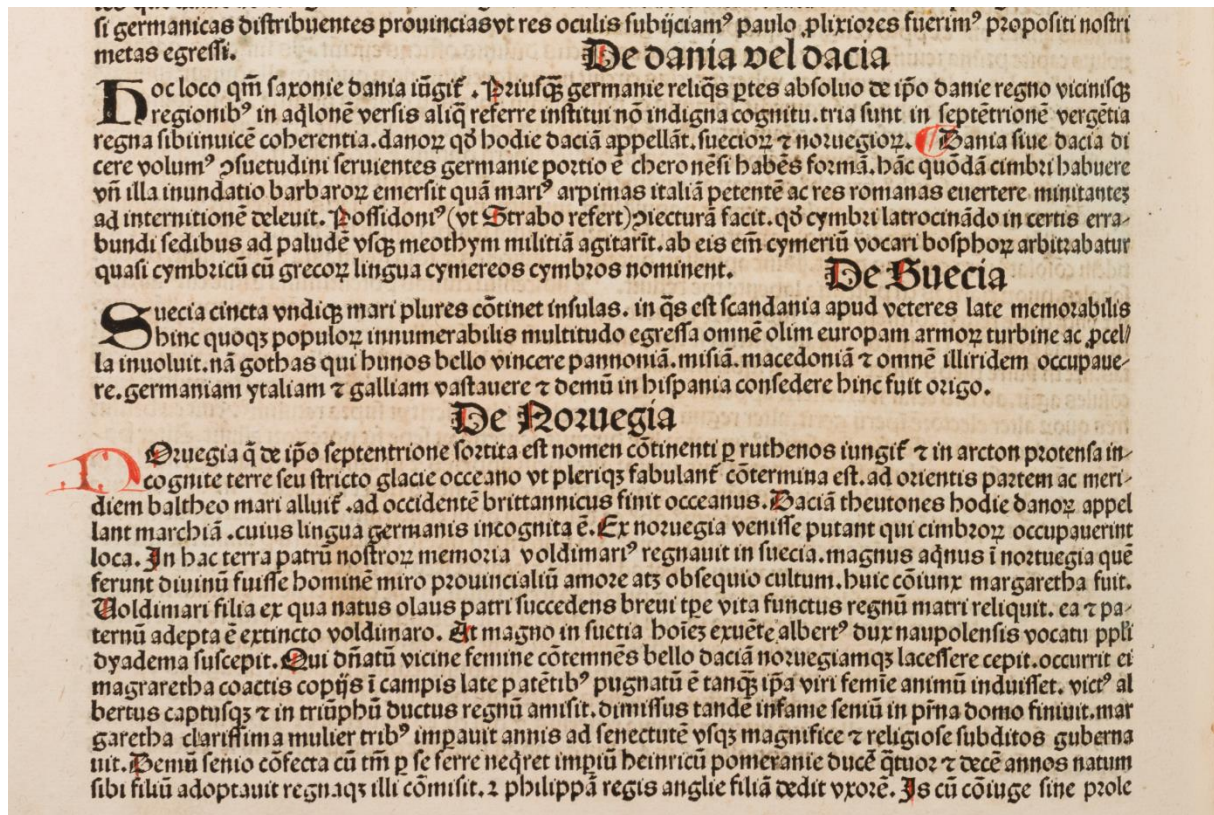 si germanicas distribuentes prouincias vt res oculis subijciamꝰ paulo ꝓlixiores fuerimꝰ propositi nostri
metas egressi.
De dania vel dacia
Hoc loco qm̄ saxonie dania iūgit᷑. Priusqꝫ germanie reliq̄s ꝑtes absoluo de ip̄o danie regno vicinisqꝫ
regionibꝰ in aq̄lonē versis aliq̄ referre institui nō indigna cognitu. tria sunt in septētrionē vergētia
regna sibiinuicē coherentia. danoꝝ qd̄ hodie daciā appellāt. suecioꝝ ⁊ noruegioꝝ. ¶ Dania siue dacia di
cere volumꝰ ↄsuetudini seruientes germanie portio ē cheronēsi habēs formā. hāc quōdā cimbri habuere
vn̄ illa inundatio barbaroꝝ emersit quā mariꝰ arpimas italiā petentē ac res romanas euertere minitantes
ad internitionē deleuit. Possidoniꝰ (vt Strabo refert) ↄiecturā facit. qd̄ cymbri latrocinādo in certis erra-
bundi sedibus ad paludē vsqꝫ meothym militiā agitarīt. ab eis eīn cymeriū vocari bosphoꝝ arbitrabatur
quasi cymbricū cū grecoꝝ lingua cymereos cymbros nominent.
De Suecia
Suecia cincta vndiqꝫ mari plures cōtinet insulas. in q̄s est scandania apud veteres late memorabilis
hinc quoqꝫ populoꝝ innumerabilis multitudo egressa omnē olim europam armoꝝ turbine ac ꝓcel/
la inuoluit. nā gothas qui hunos bello vincere pannoniā. misiā. macedoniā ⁊ omnē illiridem occupaue-
re. germaniam ytaliam ⁊ galliam vastauere ⁊ demū in hispania consedere hinc fuit origo.
De Noruegia
NOruegia q̄ de ip̄o septentrione sortita est nomen cōtinenti ꝑ ruthenos iungit᷑ ⁊ in arcton protensa in-
cognite terre seu stricto glacie occeano vt pleriqꝫ fabulant᷑ cōtermina est. ad orientis partem ac meri-
diem baltheo mari alluit᷑. ad occidentē brittannicus finit occeanus. Daciā theutones hodie danoꝝ appel
lant marchiā. cuius lingua germanis incognita ē. Ex noruegia venisse putant qui cimbroꝝ occupauerint
loca. In hac terra patrū nostroꝝ memoria voldimariꝰ regnauit in suecia. magnus aq̄nus ī nortuegia quē
ferunt diuinū fuisse hominē miro prouincialiū amore atꝫ obsequio cultum. huic cōiunx margaretha fuit.
Uoldimari filia ex qua natus olaus patri succedens breui tp̄e vita functus regnū matri reliquit. ea ⁊ pa-
ternū adepta ē extincto voldimaro. At magno in suetia hoīeꝫ exuēte albertꝰ dux naupolensis vocatu pp̄li
dyadema suscepit. Qui dn̄atū vicine femine cōtemnēs bello daciā noruegiamqꝫ lacessere cepit. occurrit ei
magraretha coactis copijs ī campis late patētibꝰ pugnatū ē tanqꝫ ip̄a viri femīe animū induisset. victꝰ al
bertus captusqꝫ ⁊ in triūphū ductus regnū amisit. dimissus tandē infame seniū in pr̄na domo finiuit. mar
garetha clarissima mulier tribꝰ imꝑauit annis ad senectutē vsqꝫ magnifice ⁊ religiose subditos guberna
uit. Demū senio cōfecta cū tm̄ ꝑ se ferre neq̄ret imꝑiū heinricū pomeranie ducē q̄tuor ⁊ decē annos natum
sibi filiū adoptauit regnaqꝫ illi cōmisit. ⁊ philippā regis anglie filiā dedit vxorē. Is cū cōiuge sine prole